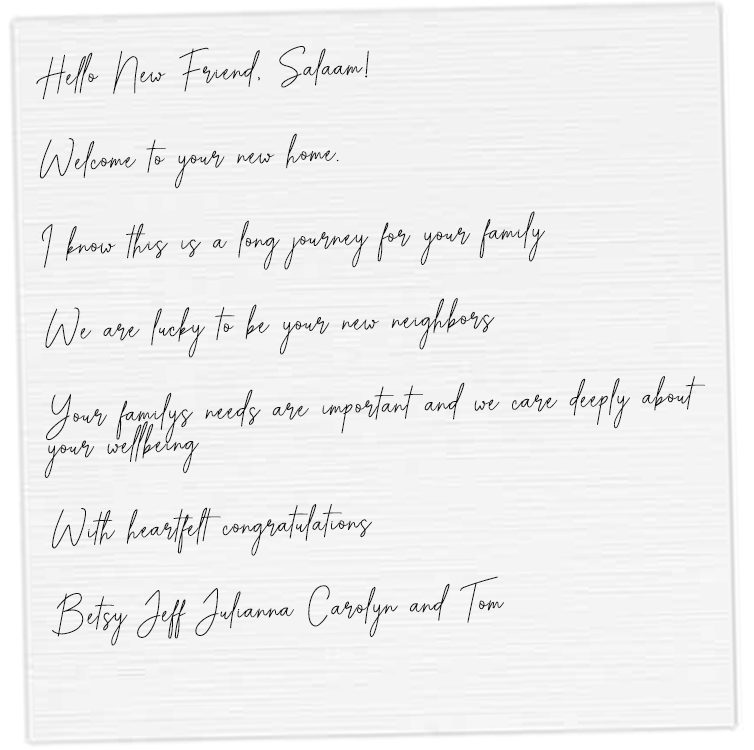 Hello New Friend, Salaam!
Welcome to your new home.
I know this is a long journey for your family
We are lucky to be your new neighbors
Your familys needs are important and we care deeply about
your wellbeing
With heartfelt congratulations
Betsy Jeff Julianna Carolyn and Tom